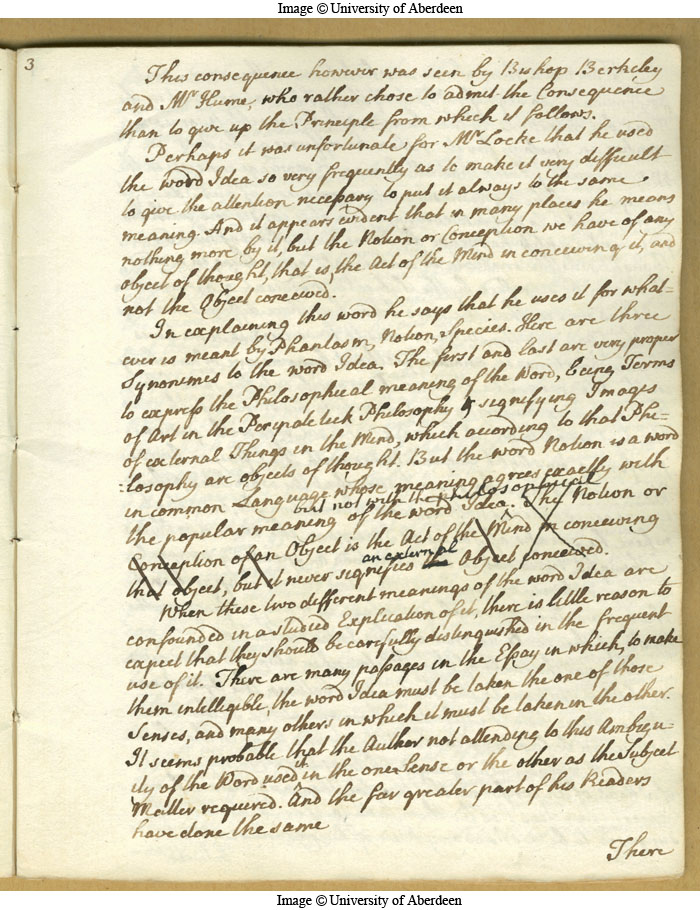 Image © University of Aberdeen
3
This consequence however was seen by Bishop Berkeley
and Mr Hume, who rather chose to admit the Consequence
than to give up the Principle from which it follows.
Perhaps it was unfortunate for Mr Locke that he used
the word Idea so very frequently as to make it very difficult
to give the attention necessary to put it always to the same
meaning. And it appears evident that in many places he means
nothing more by it, but the Notion or Conception we have of any
object of thought, that is, the Act of the Mind in conceiving it, and
not the Object conceived.
In explaining this word he says that he uses it for what-
ever is meant by Phantasm, Notion, Species. Here are three
Synonimes to the word Idea. The first and last are very proper
to express the Philosophical meaning of the Word, being Terms
of Art in the Peripatetick Philosophy & signifying Images
of external Things in the Mind, which according to that Phi=
=losophy are objects of thought. But the word Notion is a word
in common Language whose meaning agrees exactly with
but not with the philosophical
the popular meaning of the word Idea. The Notion or
Conception of an Object is the Act of the Mind in conceiving
an external
that object, but it never signifies Object conceived.
When these two different meanings of the word Idea are
confounded in a studied Explication of it, there is little reason to
expect that they should be carefully distinguished in the frequent
use of it. There are many passages in the Essay in which, to make
them intelligible, the word Idea must be taken the one of those
Senses, and many others in which it must be taken in the other.
It seems probable that the Author not attending to this Ambigu-
ity of the Word used it in the one Sense or the other as the Subject
Matter required. And the far greater part of his Readers
have done the same
There
Image © University of Aberdeen